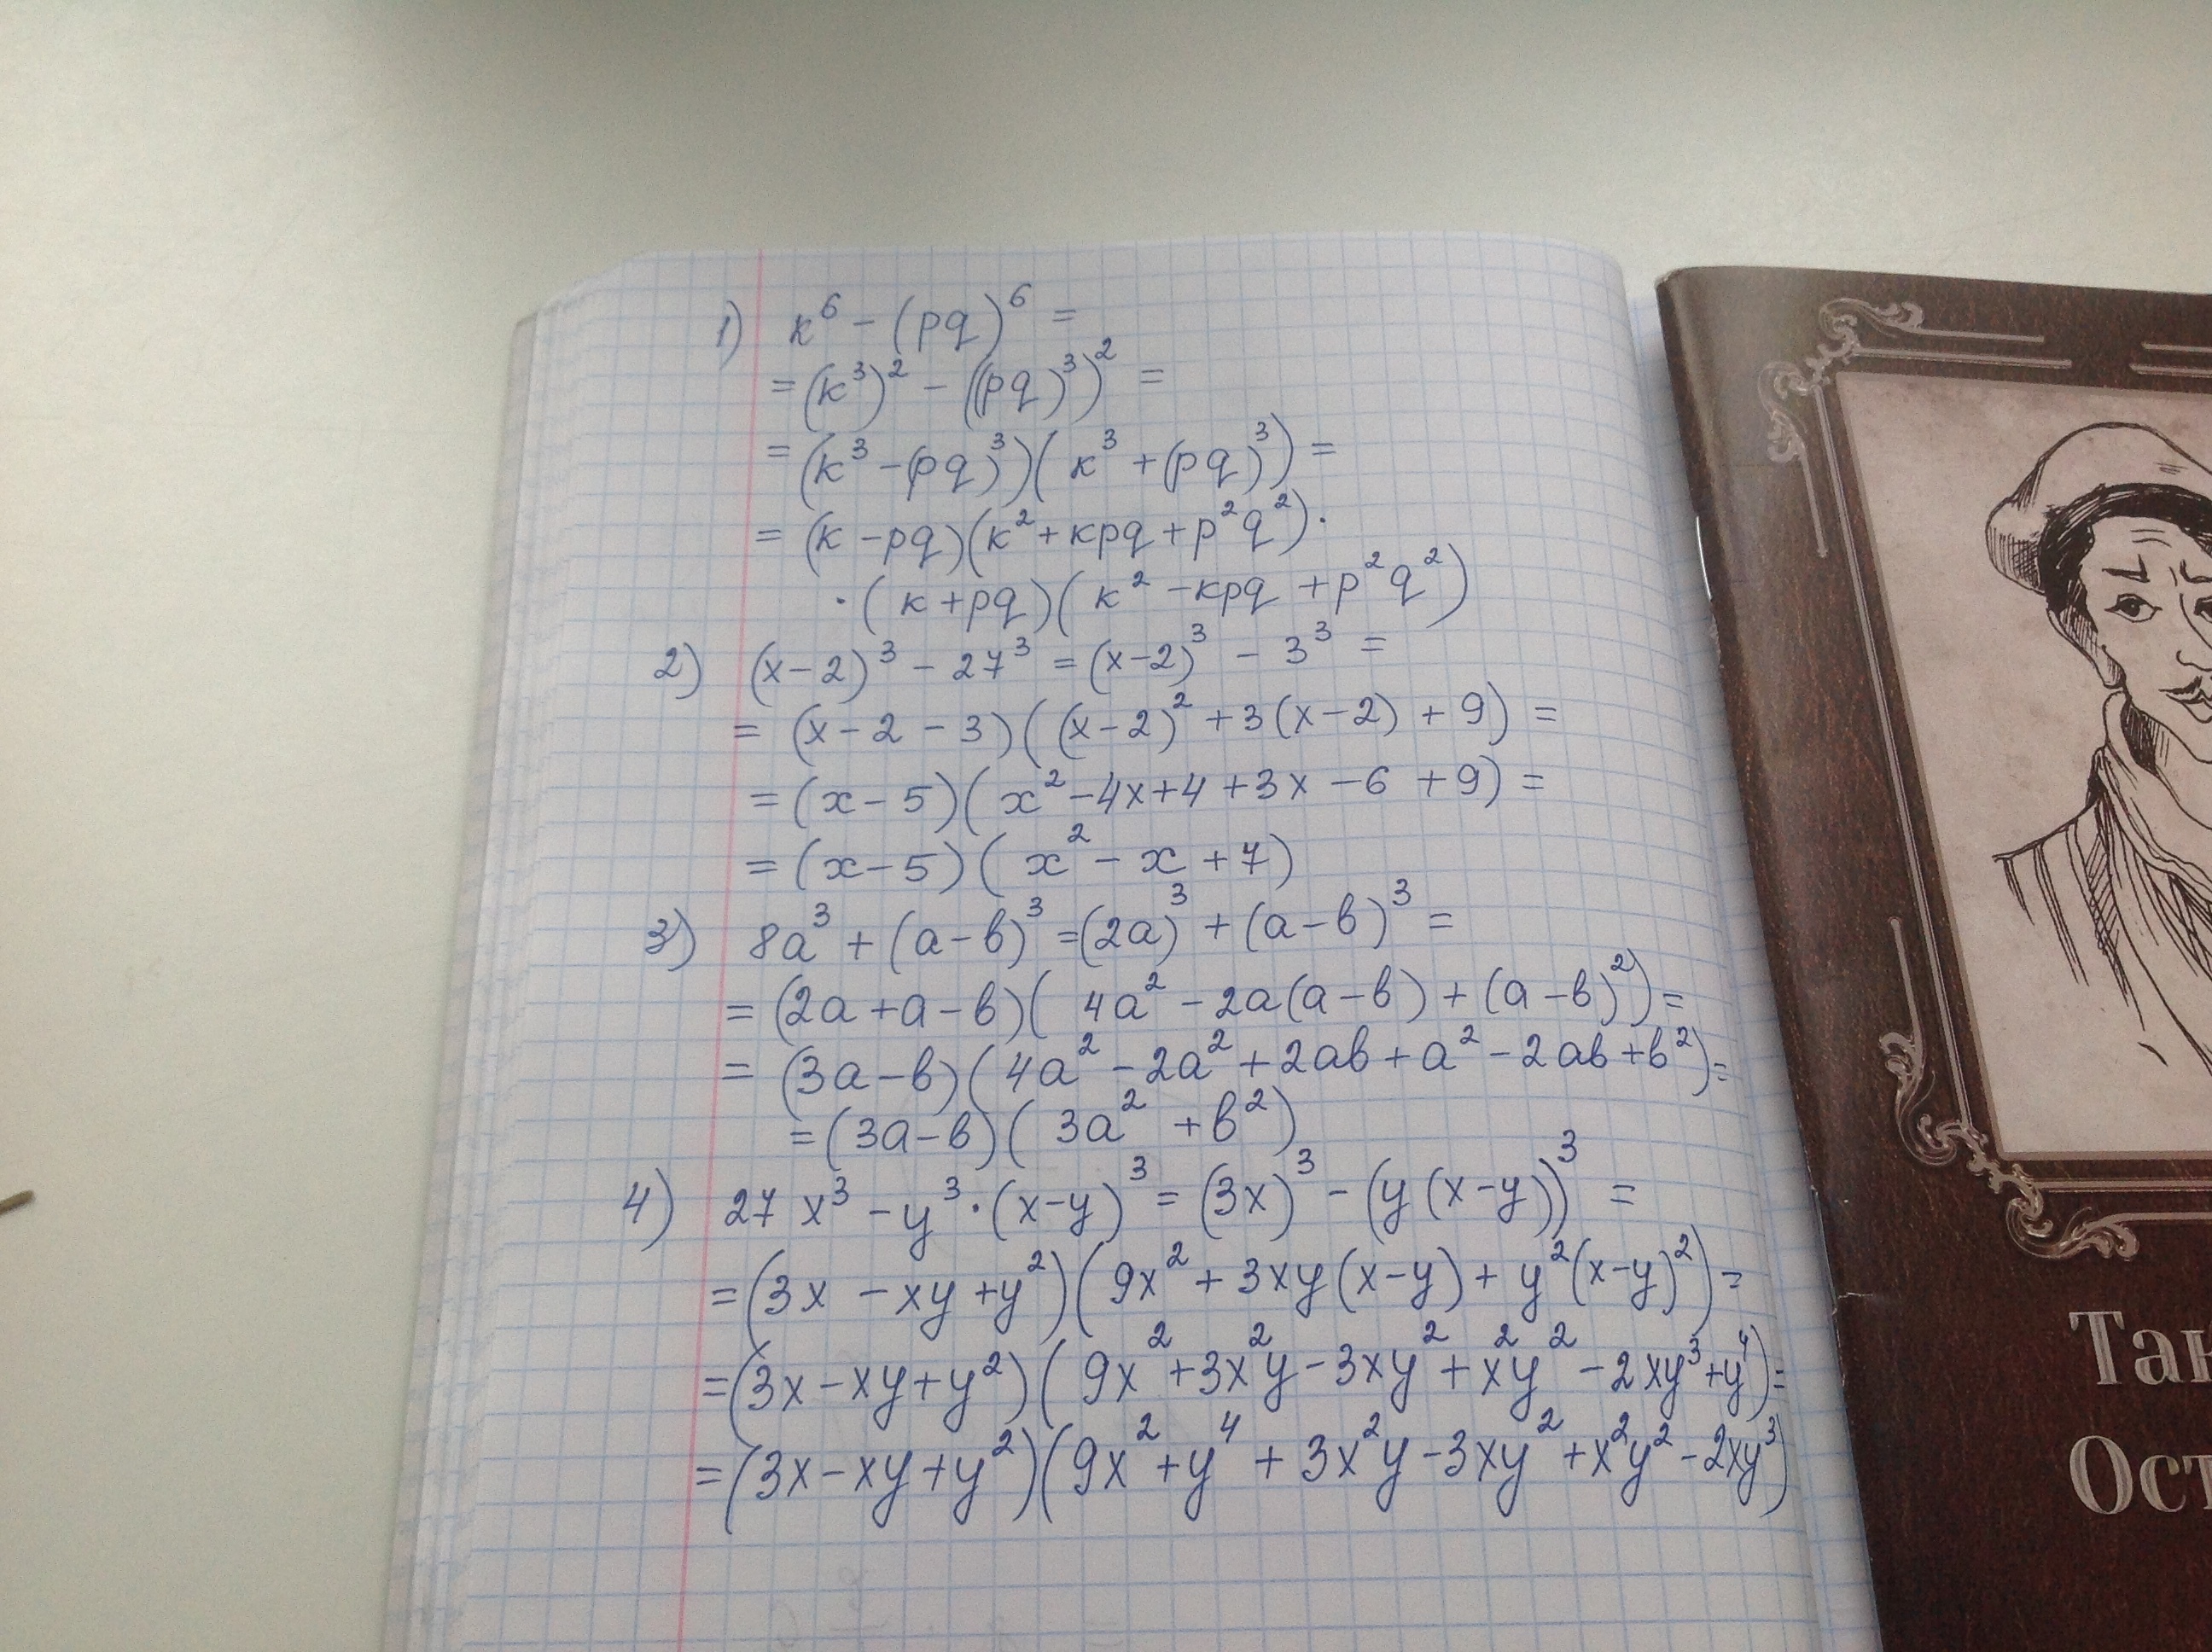 1) к⁶ - (pq)⁶ =
= (к³)² - ((pq)³)² =
= (к³ - (pq)³)(к³ + (pq)³) =
= (к - pq)(к² + кpq + p²q²) ·
· (к + pq)(к² - кpq + p²q²)
2) (x - 2)³ - 27³ = (x - 2)³ - 3³ =
= (x - 2 - 3)((x - 2)² + 3(x - 2) + 9) =
= (x - 5)(x² - 4x + 4 + 3x - 6 + 9) =
= (x - 5)(x² - x + 7)
3) 8a³ + (a - в)³ = (2a)³ + (a - в)³ =
= (2a + a - в)(4a² - 2a(a - в) + (a - в)²) =
= (3a - в)(4a² - 2a² + 2aв + a² - 2aв + в²) =
= (3a - в)(3a² + в²)
4) 27x³ - y³ · (x - y)³ = (3x)³ - (y(x - y))³ =
= (3x - xy + y²)(9x² + 3xy(x - y) + y²(x - y)²) =
= (3x - xy + y²)(9x² + 3x²y - 3xy² + x²y² - 2xy³ + y⁴) =
= (3x - xy + y²)(9x² + y⁴ + 3x²y - 3xy² + x²y² - 2xy³)
Так
Ост